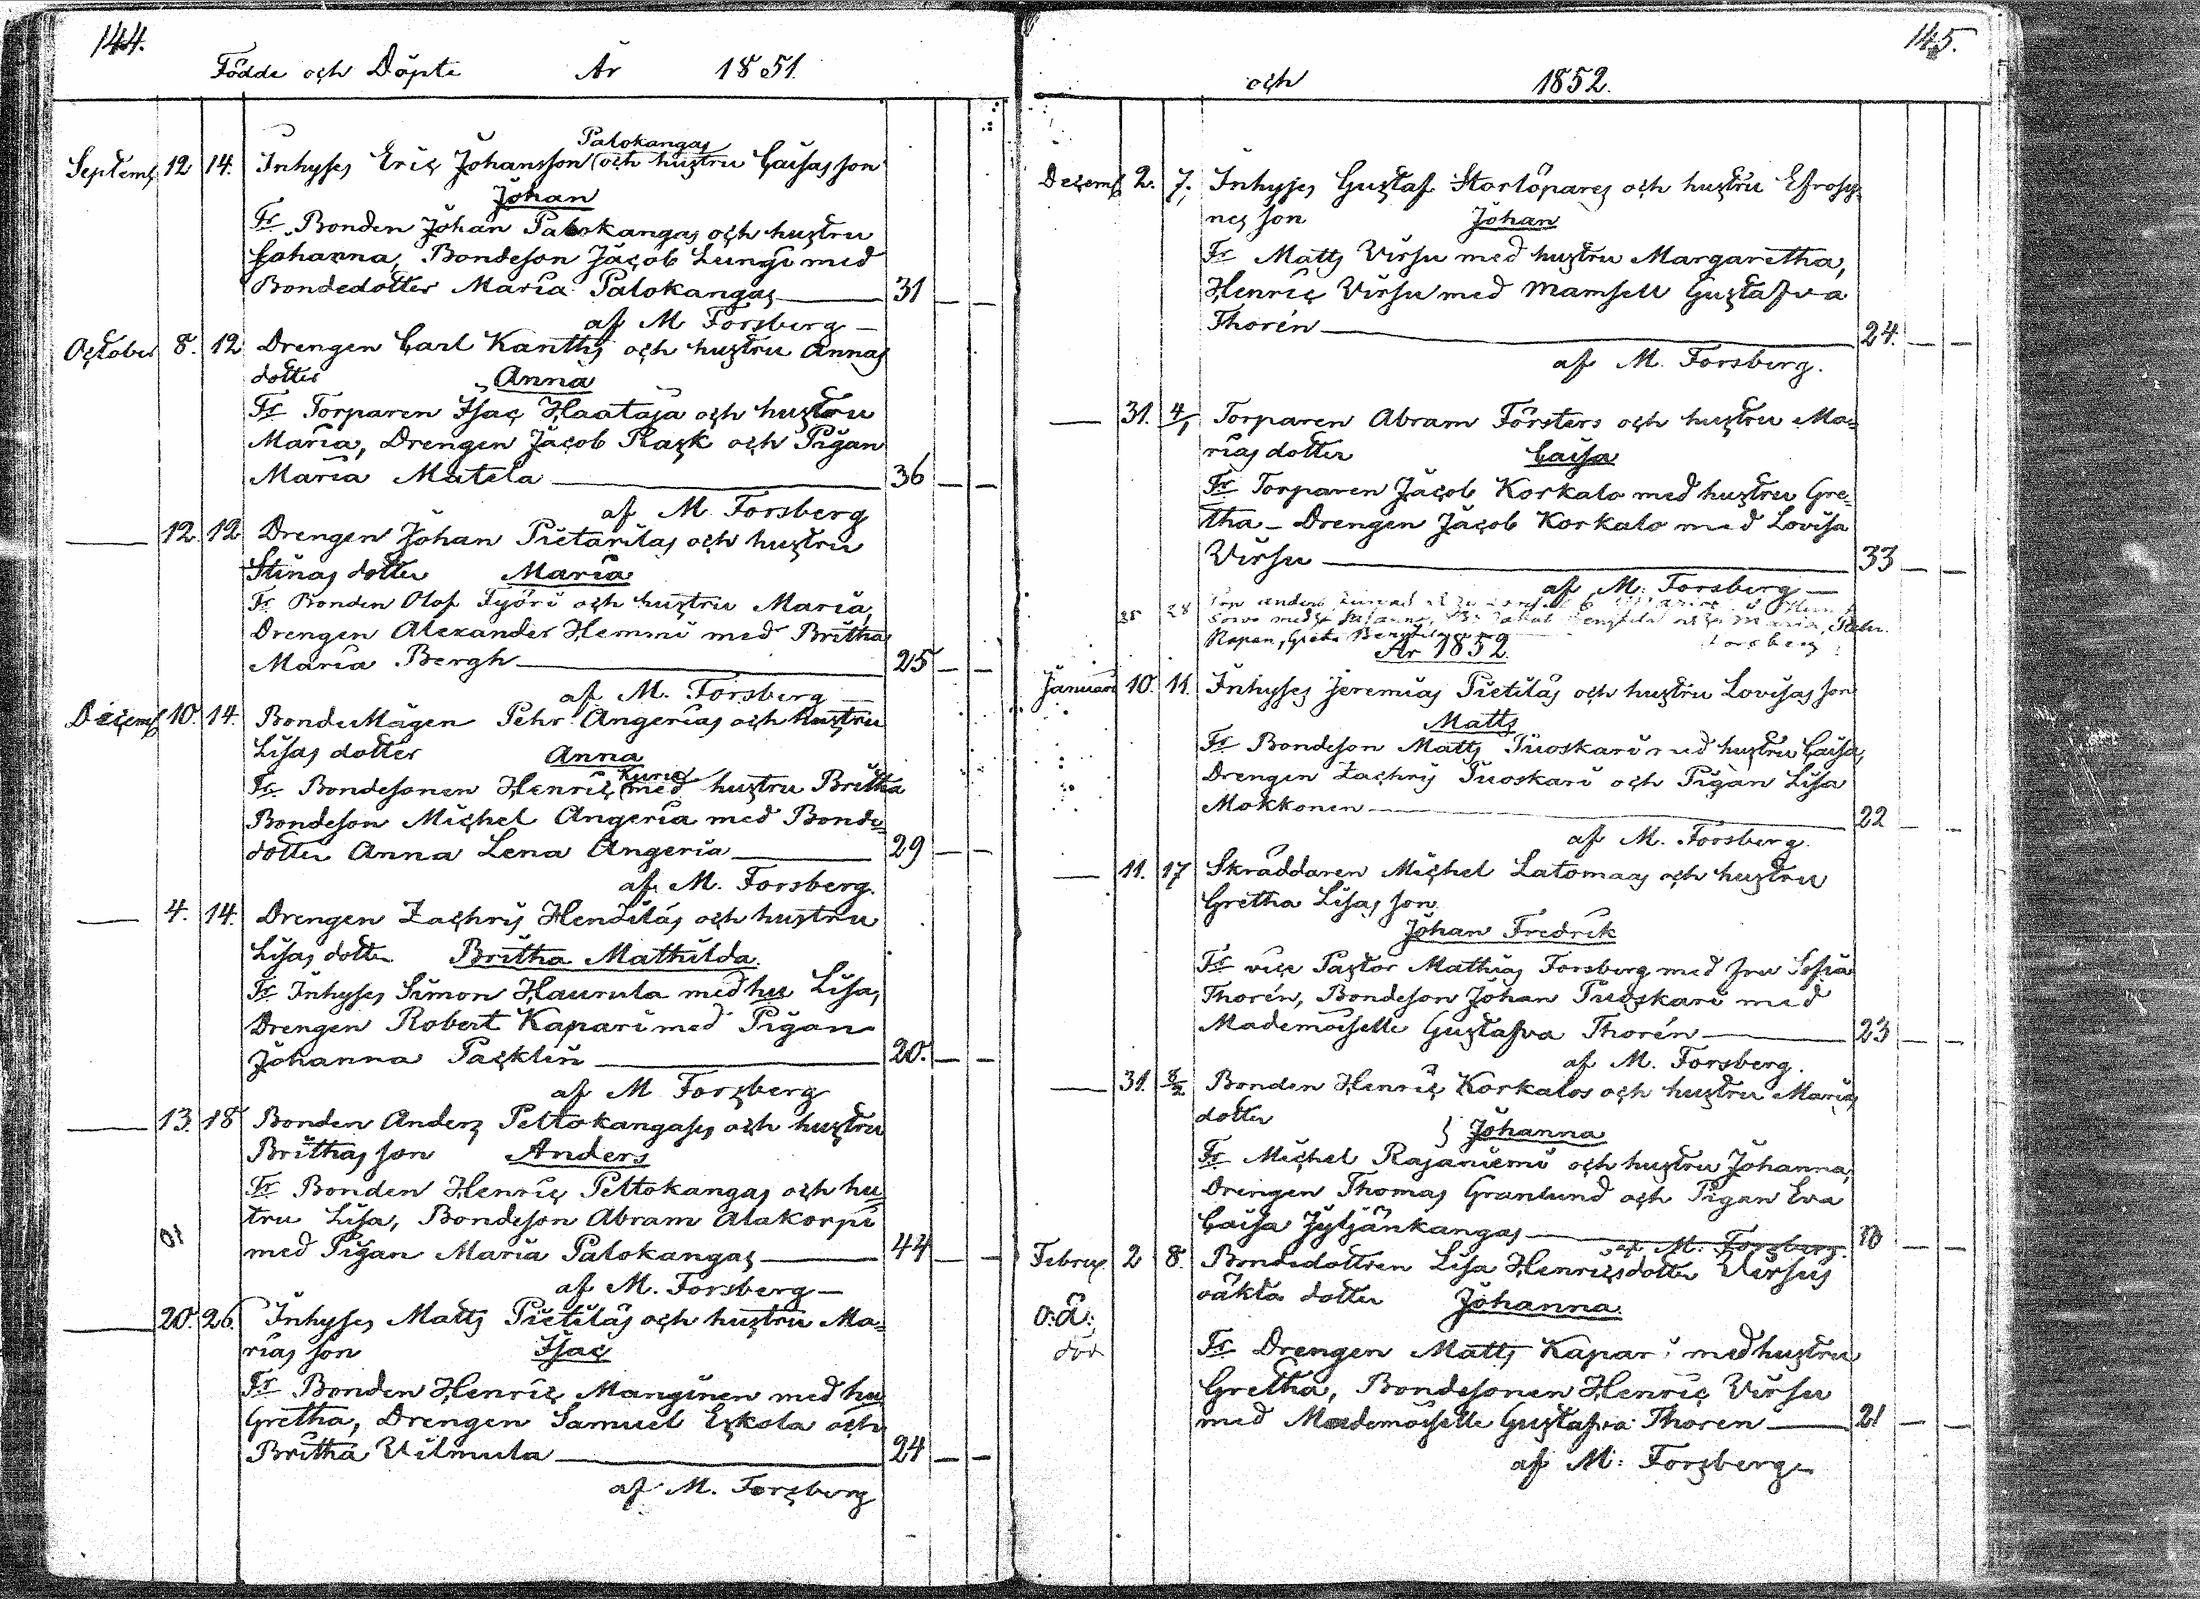 144.
Födde och Döpte År 1851.
Palokangas
Septemb 12 14. Inhyses Eric Johansson (och hustru Caisas son
Johan
Fr Bonden Johan Palokangas och hustru
Johanna, Bondeson Jacob Lungi med
Bondedotter Maria Palokangas 31
af M Forsberg
October 8. 12 Drengen Carl Kanths och hustru Annas
dotter Anna
Fr Torparen Isac Haataja och hustru
Maria, Drengen Jacob Rask och Pigan
Maria Matela 36
af M. Forsberg
12 12 Drengen Johan Pietarilas och hustru
Stinas dotter Maria
Fr Bonden Olof Työri och hustru Maria,
Drengen Alexander Hemmi med Britha
Maria Bergh 25
af M. Forsberg
Decemb 10. 14. BondeMågen Pehr Angerias och hustru
Lisas dotter Anna
Fr Bondesonen Henric (med hustru Britha
Bondeson Michel Angeria med Bonde=
dotter Anna Lena Angeria 29
af M. Forsberg.
4. 14. Drengen Zachris Hendilás och hustru
Lisas dotter Britha Mathilda.
Fr Inhyses Simon Haurula med hu Lisa,
Drengen Robert Kapari med Pigan
Johanna Packlin 20.
af M Forsberg
13. 18 Bonden Anders Peltokangases och hustru
Brithas son Anders
Fr Bonden Henric Peltokangas och hu=
tru Lisa, Bondeson Abram Alakorpi
med Pigan Maria Palokangas 44
af M. Forsberg
20. 26. Inhyses Matts Pietiläs och hustru Ma=
rias son Isac
Fr Bonden Henric Manginen med hu
Gretha, Drengen Samuel Eskola och
Britha Vilmula 24
af M. Forsberg
145.
och 1852.
Decemb 2. 7. Inhyses Gustaf Storlöpares och hustru Efrosy=
nes son Johan
Fr Matts Virsu med hustru Margaretha,
Henric Virsu med Mamsell Gustafva
Thorén 24.
af M. Forsberg.
31. 4/1 Torparen Abram Försters och hustru Ma=
rias dotter Caisa
Fr Torparen Jacob Korkalo med hustru Gre=
tha - Drengen Jacob Korkalo med Lovisa
Virsu 33
af M. Forsberg
28
Forsberg
År 1852.
Januari 10. 11. Inhyses Jeremias Pietiläs och hustru Lovisas son
Matts
Fr Bondeson Matts Puoskari med hustru Caisa,
Drengen Zachris Puoskari och Pigan Lisa
Mokkonen 22
af M. Forsberg.
11. 17 Skräddaren Michel Latomaas och hustru
Gretha Lisas son
Johan Fredrik
Fr vice Pastor Mathias Forsberg med fru Sofia
Thorén, Bondeson Johan Puoskari med
Mademoiselle Gustafva Thorén 23
af M. Forsberg.
31. 8/2 Bonden Henric Korkalos och hustru Marias
dotter Johanna
Fr Michel Rajaniemi och hustru Johanna,
Drengen Thomas Granlund och Pigan Eva
Caisa Jyljänkangas
af M. Forsberg.
Februa 2 8. Bondedottren Lisa Henricsdotter Virsus
oäkta dotter Johanna.
o:ä:
Fr Drengen Matts Kapari med hustru
Gretha, Bondesonen Henric Virsu
med Mademoiselle Gustafva Thoren 21
af M. Forsberg